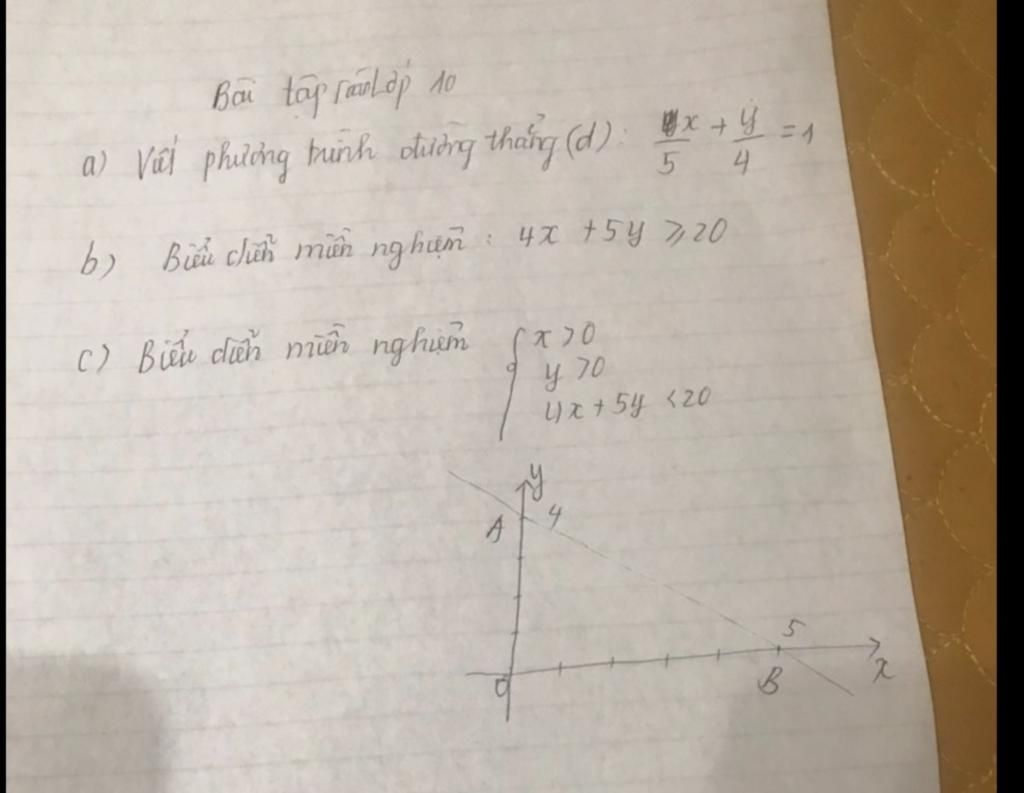 Bài tập Toán Lớp 10
a) Viết phương trình đường thẳng (d): x/5 + y/4 = 1
b) Biểu diễn miền nghiệm : 4x + 5y ⩾ 20
c) Biểu diễn miền nghiệm { x > 0
y > 0
4x + 5y < 20
y
A 4
5
O B x